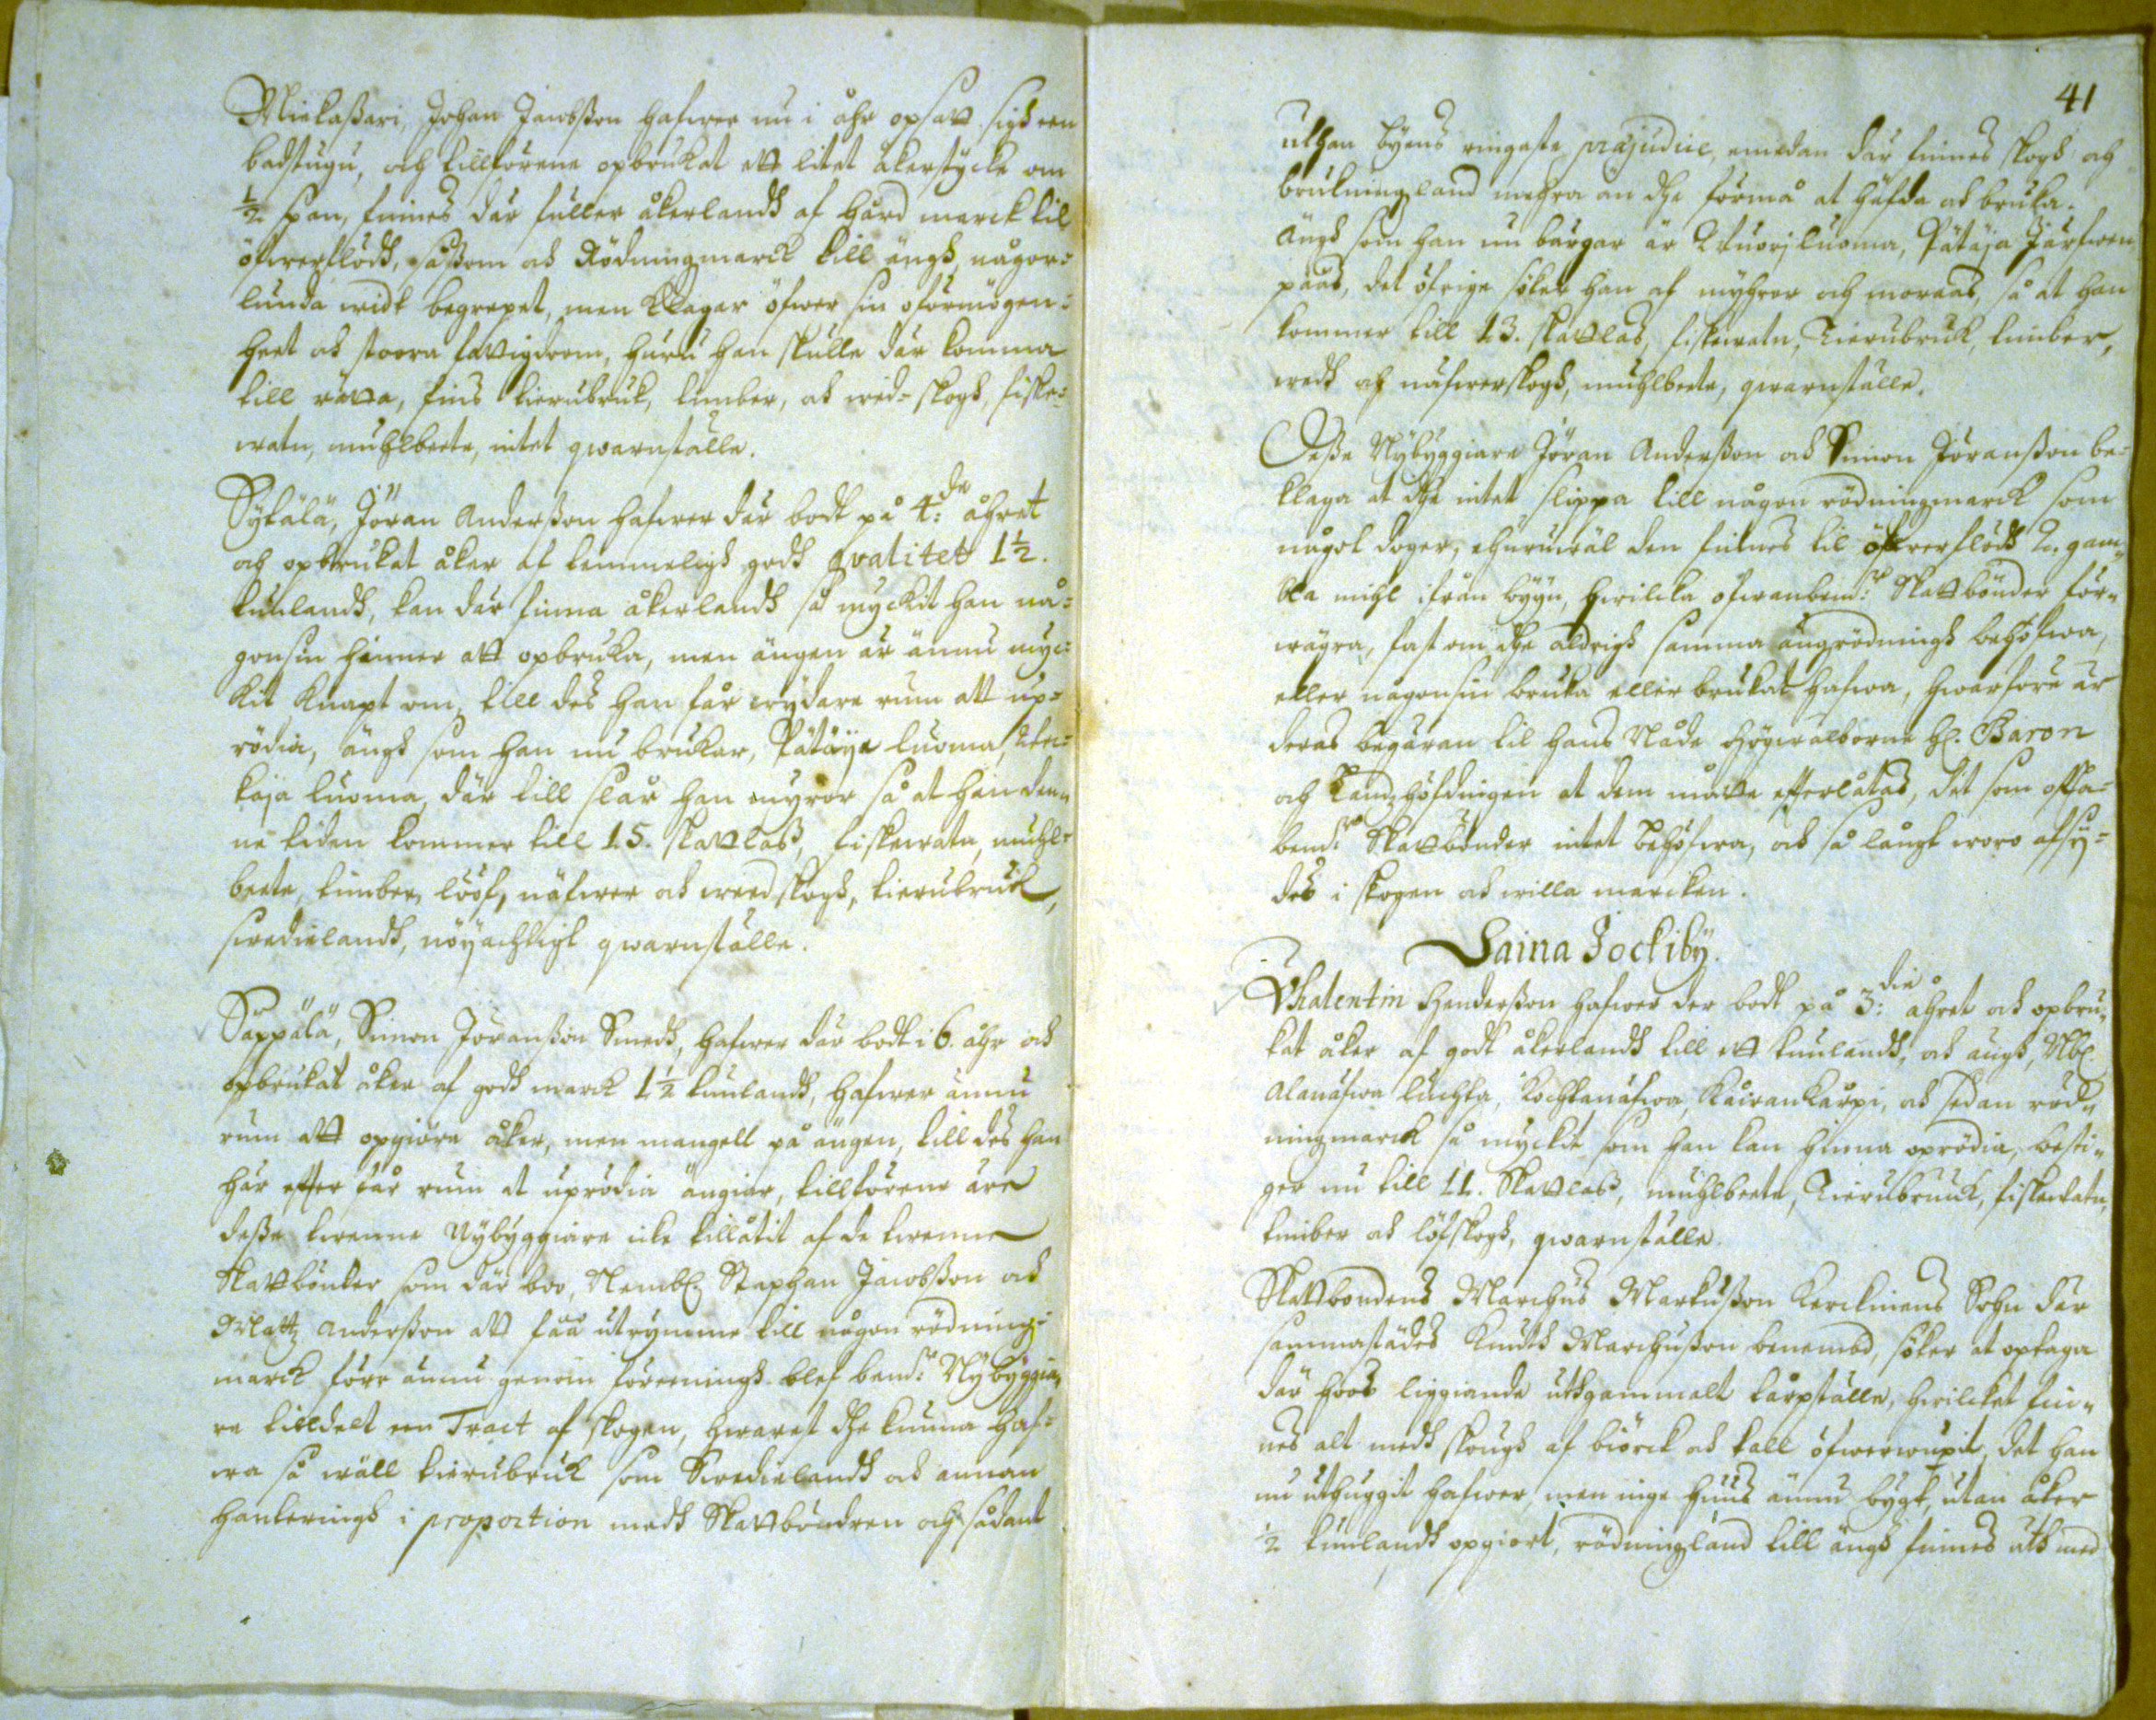 Mielaßari, Johan Jacobßon hafwer nu i åhr opsatt sigh een
badstugu, och tillförene opbrukat ett litet åkerstycke om
½ span, finnes där fuller åkerlandh af hård marck til
öfwerflödh, såßom och Rödningzmarck till ängh, någor=
lunda widt begrepet, men klagar öfwer sin oförmögen=
heet och stoora fattigdoom, huru han skulle där komma
till rätta, fins tierubruk, timber, och wed=skogh, fiske=
watn, muhlbeete, intet qwarnställe.
Sykälä, Jöran Anderßon hafwer där bodt på 4:de åhret
och opbrukat åker af temmeligh godh qvalitet 1½.
tunlandh, kan där finna åkerlandh så myckit han nå=
gonsin hinner att opbruka, men ängen är ännu myc=
kit knapt om, till des han får wydare rum att up=
rödia, ängh som han nu brukar, Pätäye luoma,
kaja luoma, där till slår han myror så at han den=
ne tiden kommer till 15. skattlaß, fiskewatn, muhl=
beete, timber, lööf, näfwer och weedskogh, tierubruk,
swedielandh, nöyachtigt qwarnställe.
Säppälä, Simon Jöranßon Smedh, hafwer där bodt i 6. åhr och
opbrukat åker af godh marck 1½ tunlandh, hafwer ännu
rum att opgiöra åker, men mangell på ängen, till des han
här effter får rum at uprödia ängiar, tillförene äre
deße twenne Nybyggiare icke tillåtit af de twenne
Skattbönder som där boo, Nembl. Staphan Jacobßon och
Mattz Anderßon att fåå utrymme till någon rödningz=
marck förr ännu genom föreeningh blef bem:te Nybyggia=
re tilldelt een Tract af skogen, hwarest dhe kunna haf=
wa så wäll tierubruk som Swedielandh och annan
hanteringh i proportion medh Skattböndren och sådant
41
uthan byens ringaste præjudice, emedan där finnes skogh och
brukningzland mehra än dhe förmå at häfda och bruka.
Ängh som han nu bärgar är Wuorjluoma, Pätäja Järfwen
pääs, det öfrige söker han af myhror och moraas, så at han
kommer till 13. skattlas, fiskewatn, Tierubruk, timber,
wedh och näfwerskogh, muhlbeete, qwarnställe.
Deße Nybyggiare Jöran Anderßon och Simon Jöranßon be=
klaga at dhe intet slippa till någon rödningzmarck som
något doger, ehuruwäl den finnes til öfwerflödh 2. gam=
bla mihl ifrån byyn, hwilcka ofwanbem:te Skattbönder för=
wägra, fast om dhe aldrigh samma ängrödningh behöfwa,
eller någonsin bruka eller brukat hafwa, hwarföre är
deras begäran til hans Nåde Högwälborne H. Baron
och Landzhöfdingen at dem måtte efterlåtas, dät som offta=
bem:te Skattbönder intet behöfwa, och så långt woro afsy=
des i skogen och willa marcken.
Saina Jockiby.
Vhalentin Henderßon hafwer der bodt på 3:die åhret och opbru=
kat åker af godt åkerlandh till ett tunlandh, och ängh, Nbl.
Alanäfwa luchta, Kochtanäfwa, Käirankårpi, och sedan röd=
ningzmarck så myckit som han kan hinna oprödia, besti=
ger nu till 11. Skattlaß, muhlbeete, Tierubruuk, fiskewatn,
timber och löfskogh, qwarnställe.
Skattbondens Marchus Markußon Kerckinens Sohn där
sammastädes Knuth Marchußon benembd, söker at optaga
där hoos liggiande uthgammalt torpställe, hwilcket fin=
nes alt medh skough af biörck och tall öfwerwuxit, det han
nu uthuggit hafwer, men inge huus ännu bygt, utan åker
½ tunlandh opgiort, rödningzland till ängh finnes uth med